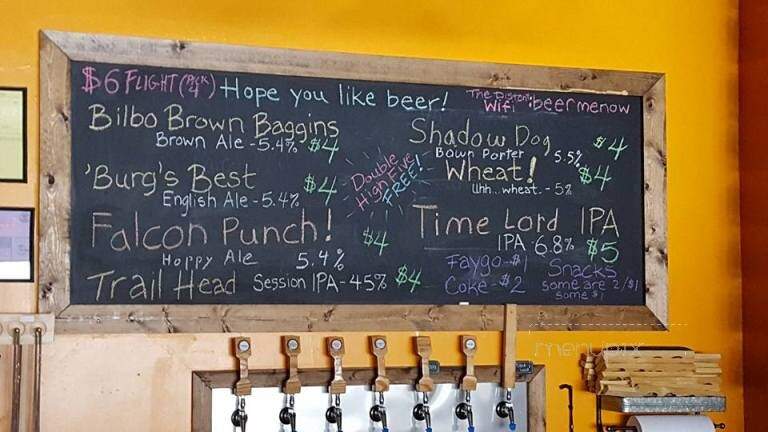 $6 FLIGHT (Pick 4) Hope you like beer!
Wifi: beermenow
Bilbo Brown Baggins
Brown Ale - 5.4% $4
'Burg's Best
English Ale - 5.4% $4
Falcon Punch! $4
Hoppy Ale 5.4%
Trail Head Session IPA - 45% $4
Double
High Five
FREE!
Shadow Dog $4
Bown Porter 5.5%
Wheat! $4
Uhh...wheat. - 5%
Time Lord IPA
IPA 6.8% $5
Faygo - $1
Coke - $2
Snacks
some are 2/$1
some $1
menupix